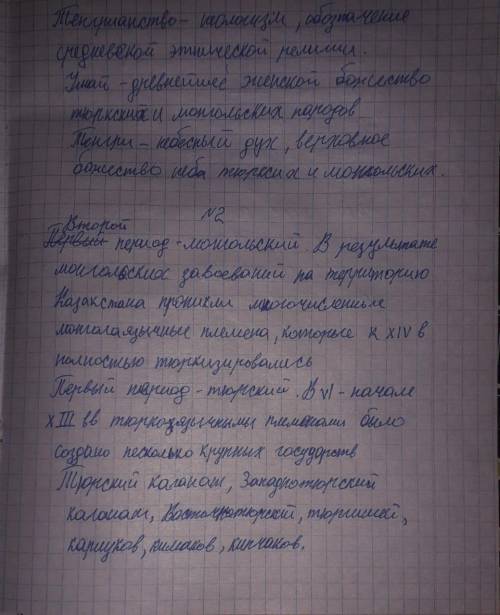 Тенгрианство - неологизм, обозначение
средневекой этнической религии.
Умай - древнейшее женской божество
тюркских и монгольских народов
Тенгри - небесный дух, верховное
божество неба тюрксих и монгольских.
№2
Второй
Первый период - монгольский. В результате
монгольских завоеваний на территорию
Казахстана проникли многочисленные
монголаязычные племена, которые к XIV в
полностью тюркизировались
Первый период - тюрский. В VI - начале
XIII вв тюркоязычными племенами было
создано несколько крупных государств
Тюрский каганат, Западнотюрский
каганат, Восточнотюрский, тюргишей,
карлуков, кимаков, кипчаков.